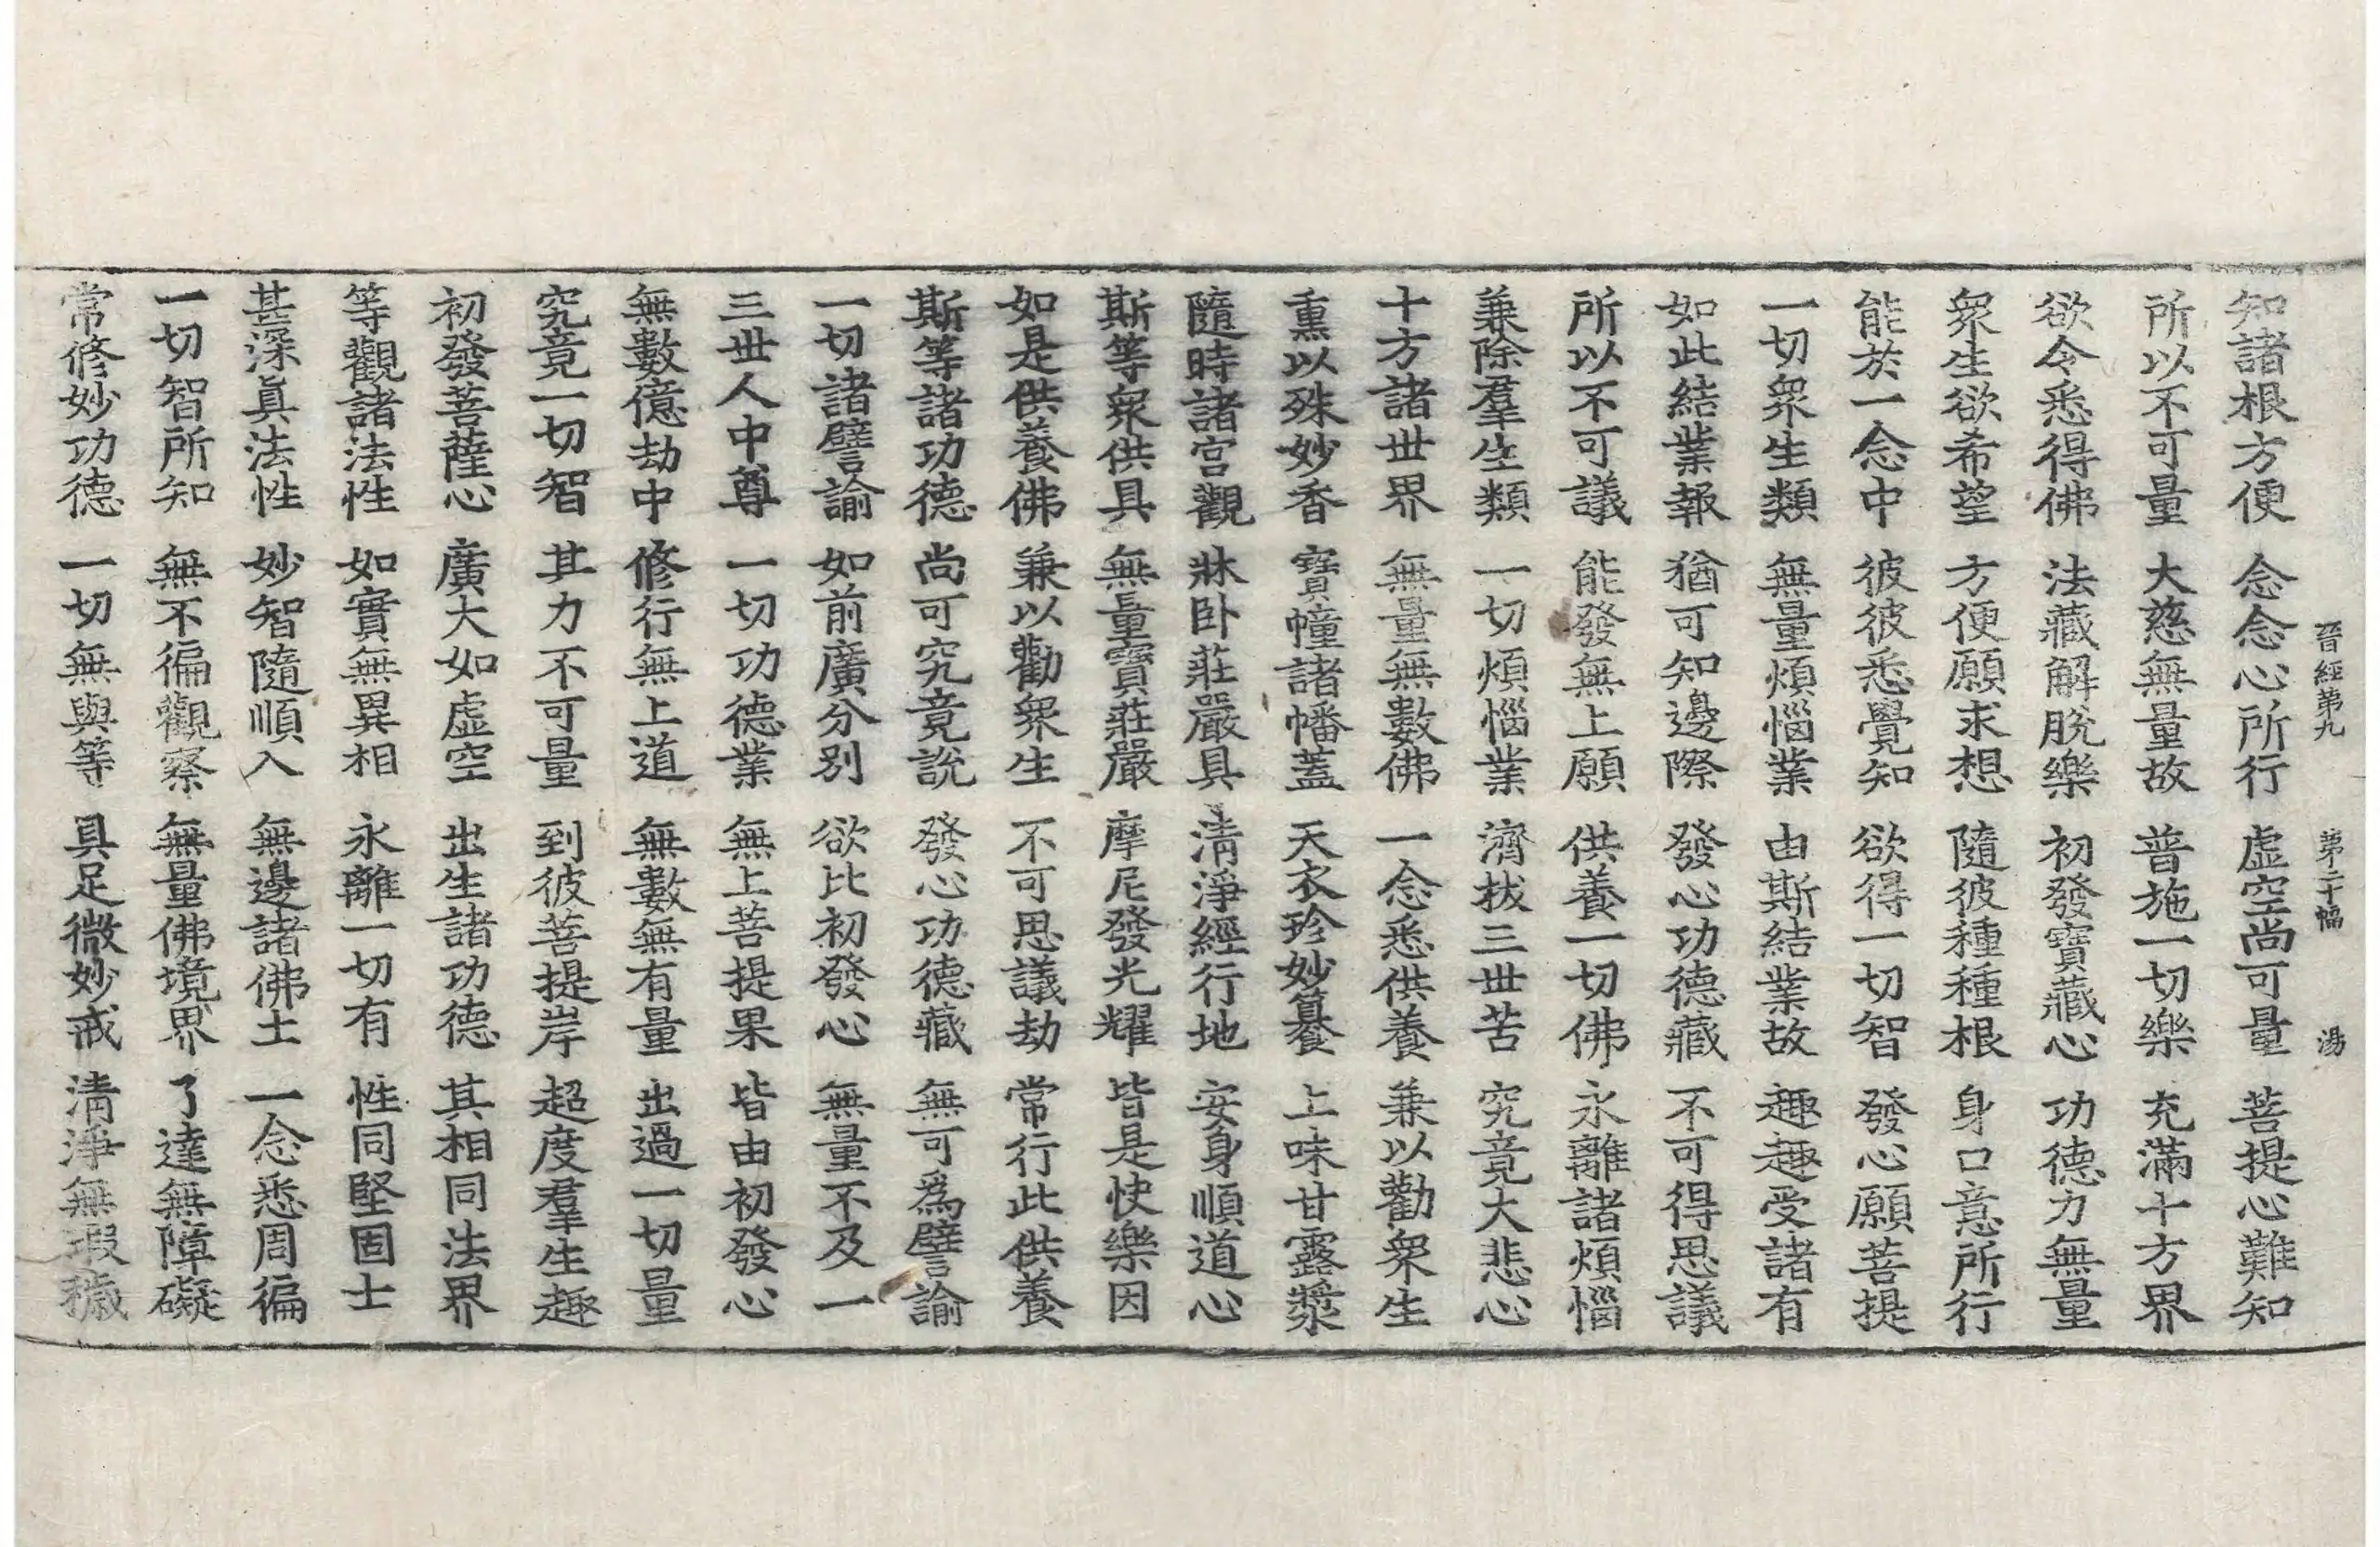 晉經第九 第二十幅 湯
知諸根方便 念念心所行 虛空尚可量 菩提心難知
所以不可量 大慈無量故 普施一切樂 充滿十方界
欲令悉得佛 法藏解脫樂 初發寶藏心 功德力無量
眾生欲希望 方便願求想 隨彼種種根 身口意所行
能於一念中 彼彼悉覺知 欲得一切智 發心願菩提
一切眾生類 無量煩惱業 由斯結業故 趣趣受諸有
如此結業報 猶可知邊際 發心功德藏 不可得思議
所以不可議 能發無上願 供養一切佛 永離諸煩惱
兼除羣生類 一切煩惱業 濟拔三世苦 究竟大悲心
十方諸世界 無量無數佛 一念悉供養 兼以勸眾生
熏以殊妙香 寶幢諸幡蓋 天衣珍妙饌 上味甘露漿
隨時諸宮觀 牀臥莊嚴具 清淨經行地 安身順道心
斯等眾供具 無量寶莊嚴 摩尼發光耀 皆是快樂因
如是供養佛 兼以勸眾生 不可思議劫 常行此供養
斯等諸功德 尚可究竟說 發心功德藏 無可為譬諭
一切諸譬諭 如前廣分別 欲比初發心 無量不及一
三世人中尊 一切功德業 無上菩提果 皆由初發心
無數億劫中 修行無上道 無數無有量 出過一切量
究竟一切智 其力不可量 到彼菩提岸 超度羣生趣
初發菩薩心 廣大如虛空 出生諸功德 其相同法界
等觀諸法性 如實無異相 永離一切有 性同堅固士
甚深真法性 妙智隨順入 無邊諸佛土 一念悉周徧
一切智所知 無不徧觀察 無量佛境界 了達無障礙
常修妙功德 一切無與等 具足微妙戒 清淨無瑕穢